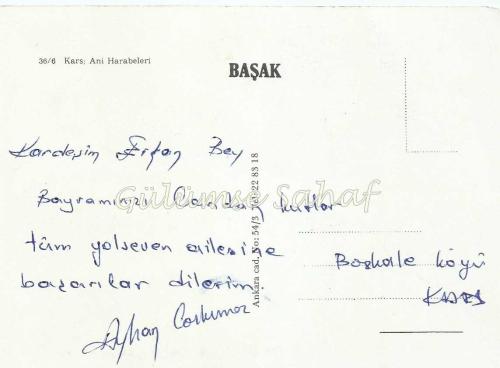 36/6 Kars; Ani Harabeleri
BAŞAK
Kardeşim Erfan Bey
Bayramınızı Candan kutlar
tüm yolseven ailesine
başarılar dilerim.
Ayhan
Ankara cad. No: 54/3 Tel: 22 83 18
Boskale köyü
KARS
Gülümse Sahaf